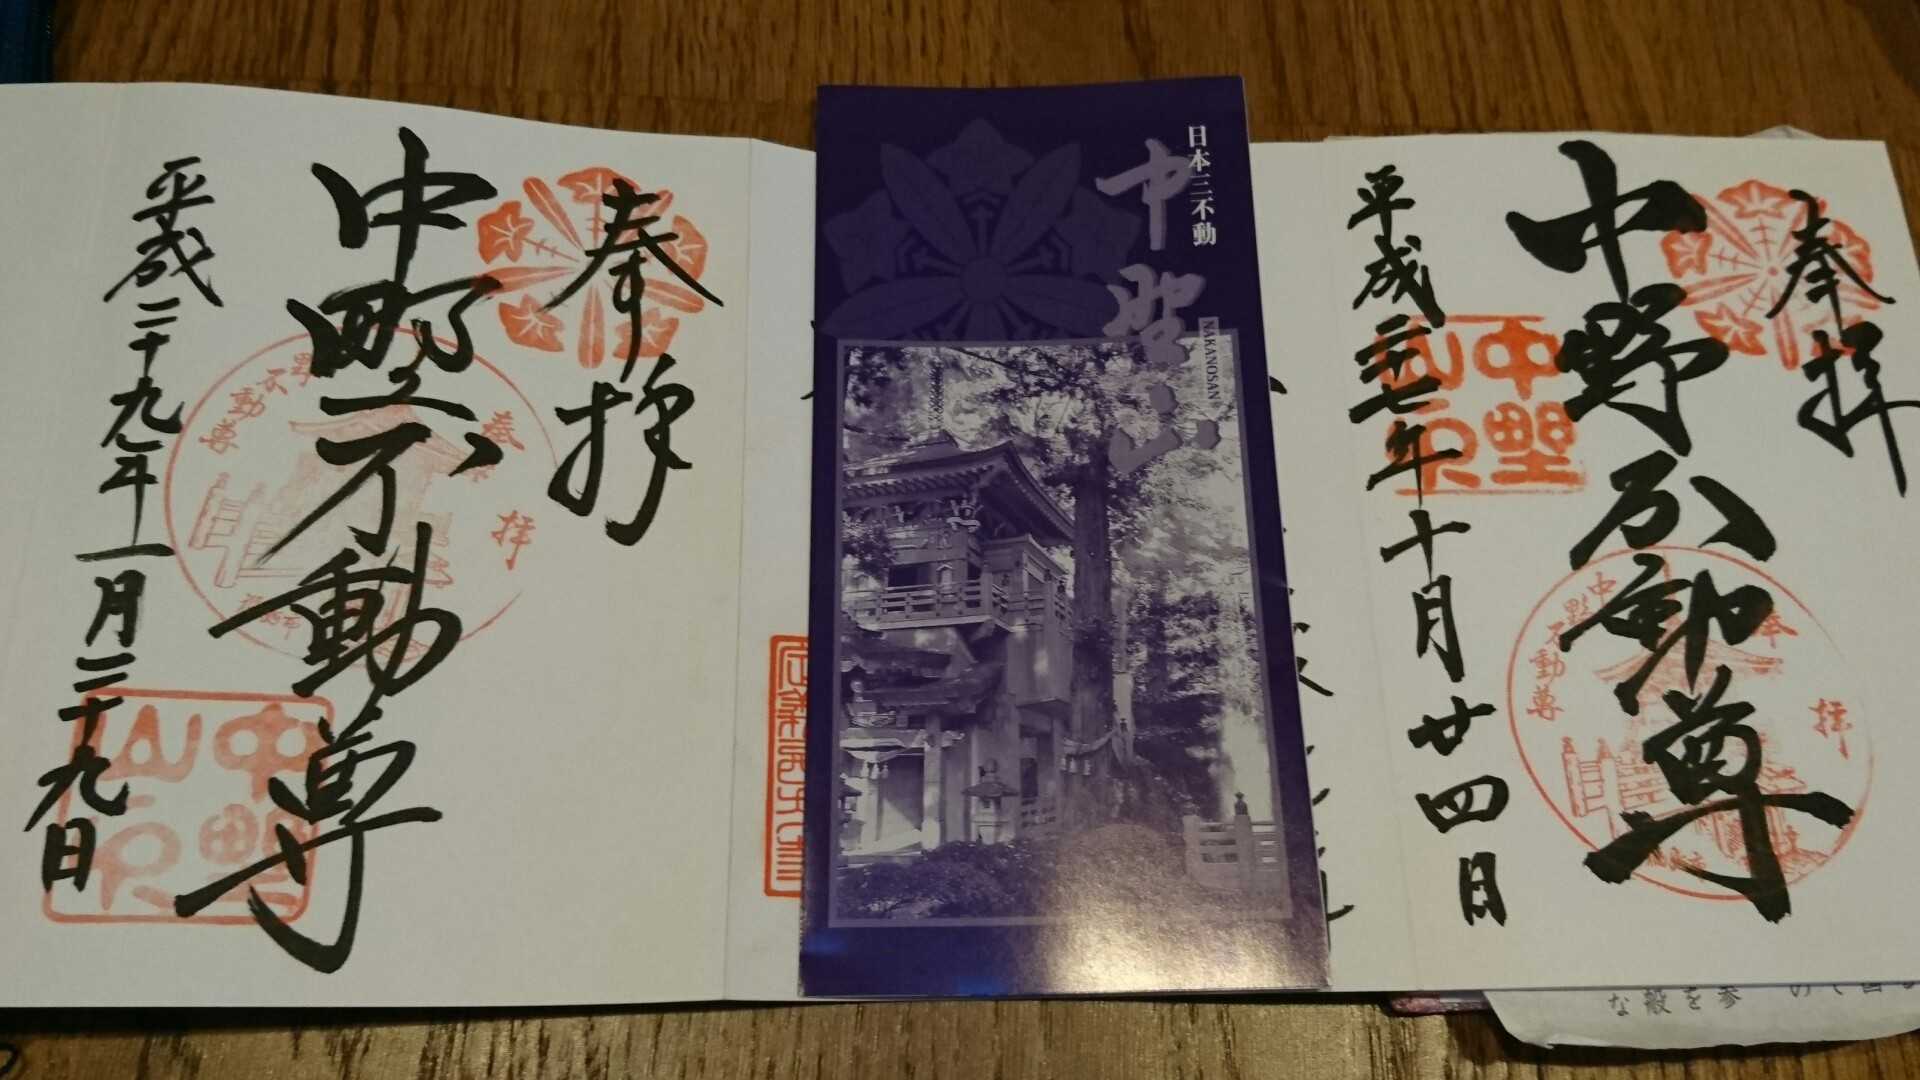 奉拝
中野不動尊
平成二十七年十月廿四日
奉拝
中野不動尊
中野
日本三不動
中野山
NAKANOSAN
奉拝
中野不動尊
平成二十九年一月二十九日
奉拝
不動尊
中野山